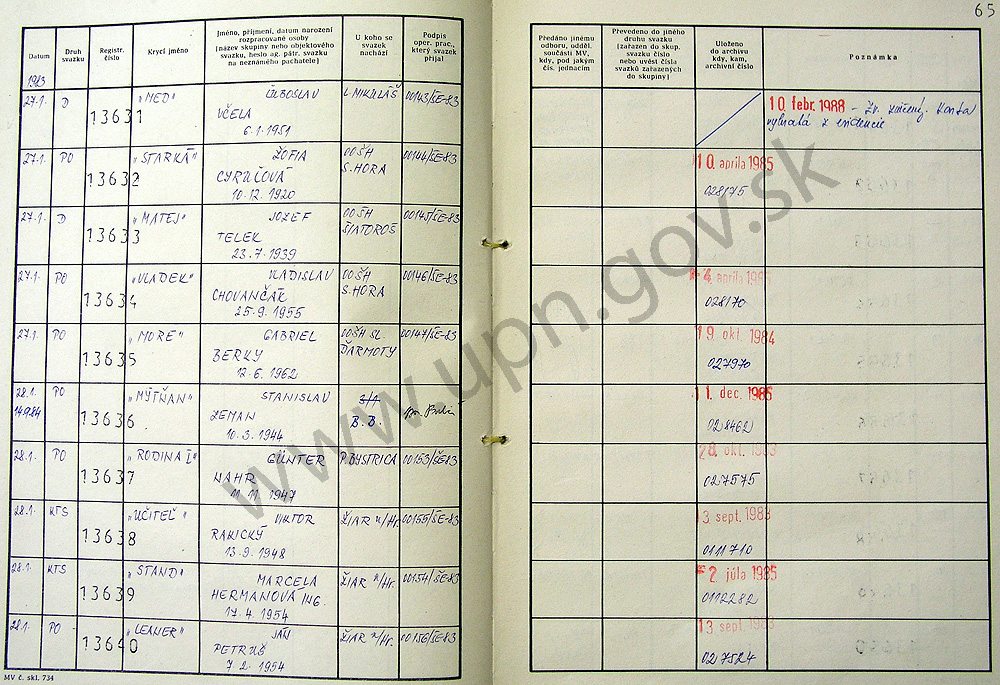 65
Datum
Druh svazku
Registr. číslo
Krycí jméno
Jméno, příjmení, datum narození
rozpracované osoby
(název skupiny nebo objektového
svazku, heslo ag. pátr. svazku
na neznámého pachatele)
U koho se
svazek
nachází
Podpis
oper. prac.,
který svazek
přijal
Předáno jinému
odboru, odděl.
součásti MV,
kdy, pod jakým
čís. jednacím
Převedeno do jiného
druhu svazku
(zařazen do skup.
svazku číslo
nebo uvést čísla
svazků zařazených
do skupiny)
Uloženo
do archivu
kdy,
archivní číslo
Poznámka
1983
27.1. D 13631 "MED" ĽUBOSLAV L. MIKULÁŠ 00143/ŠE-83
VČELA
6.1.1951
10. febr. 1988 - Zv. zničený. Karta
vybratá z evidencie
27.1. PO 13632 "STARKÁ" ŽOFIA OOŠH 00144/ŠE-83 10. apríla 1985
CYRUĽOVÁ Š. HORA
10.12.1920 028175
27.1. D 13633 "MATEJ" JOZEF OOŠH 00145/ŠE-83
TELEK ŠIATOROŠ
23.7.1939
27.1. PO 13634 "VLADEK" VLADISLAV OOŠH 00146/ŠE-83 4. apríla 198
CHOVANČÁK S. HORA
25.9.1955 028170
27.1. PO 13635 "MORE" GABRIEL OOŠH SL. 00147/ŠE-83 19. okt. 1984
BERKY ĎARMOTY
12.6.1962 027970
28.1. PO 13636 "MÝTŇAN" STANISLAV 11. dec. 1985
14.9.84 ZEMAN B.B.
10.3.1944 028462
28.1. PO 13637 "RODINA I" GÜNTER P. BYSTRICA 00153/ŠE-83 28. okt. 1983
NAHR
11.11.1947 027575
28.1. KTS 13638 "UČITEĽ" VIKTOR ŽIAR n/Hr. 00155/ŠE-83 13. sept. 1983
RAKICKÝ
13.9.1948 0111710
28.1. KTS 13639 "STAND" MARCELA ŽIAR n/Hr. 00154/ŠE-83 2. júla 1985
HERMANOVÁ ING.
17.4.1954 0112282
28.1. PO 13640 "LEANER" JÁN ŽIAR n/Hr. 00156/ŠE-83 13. sept
PETRUŠ
7.2.1954 027524
MV č. skl. 734
www.upn.gov.sk